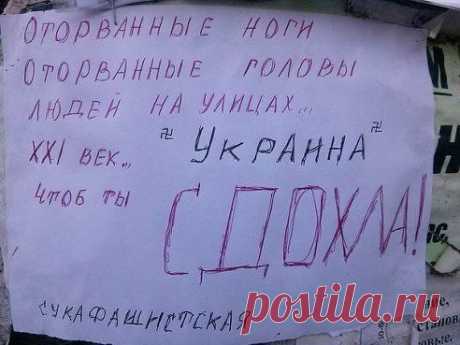 ОТОРВАННЫЕ НОГИ
ОТОРВАННЫЕ ГОЛОВЫ
ЛЮДЕЙ НА УЛИЦАХ...
XXI ВЕК... 卐 УКРАИНА 卐
ЧТОБ ТЫ СДОХЛА!
СУКА ФАШИСТСКАЯ
postila.ru